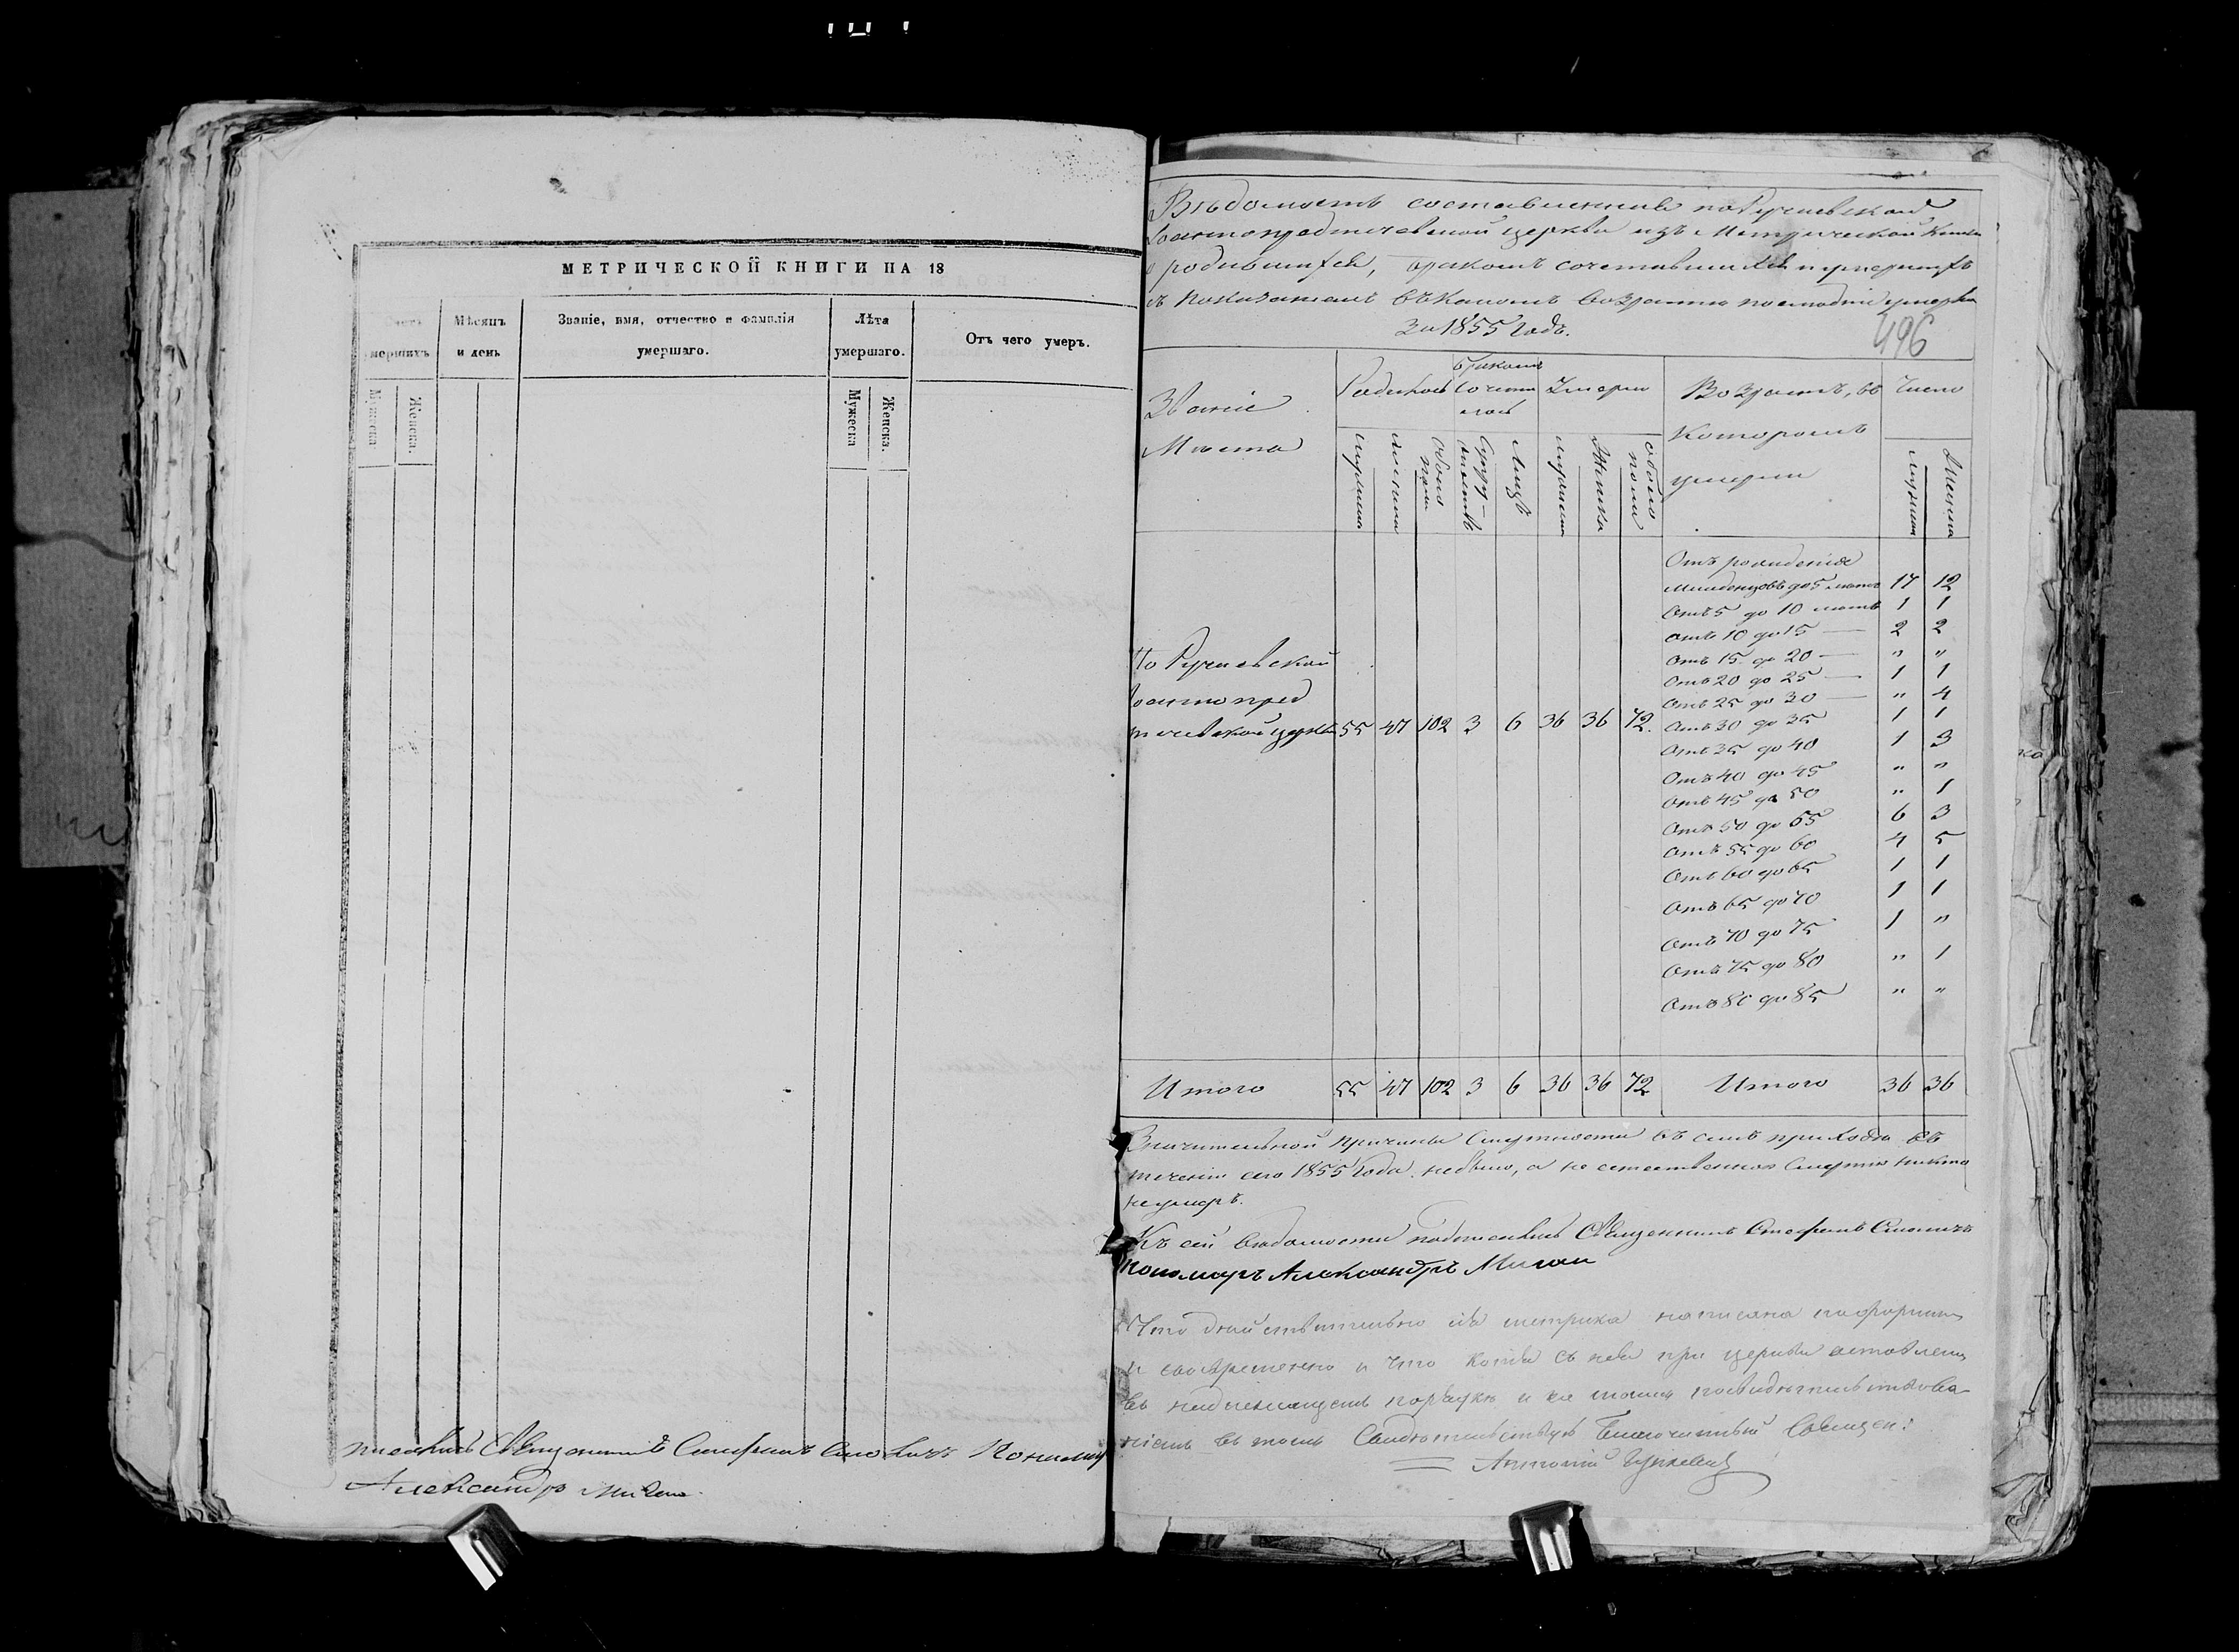 МЕТРИЧЕСКОЙ КНИГИ НА 18
Мѣсяцъ и день
Званіе, имя, отчество и фамилія умершаго.
Лѣта умершаго.
Отъ чего умеръ.
Мужеска
Женска.
Мужеска
Женска.
Александръ
Вѣдомость составленная по Ручаевской
Іоаннопредтечевской церкви изъ Метрической Книги
о родившихся, бракомъ сочетавшихся и умершихъ
съ показаніемъ въ какомъ возрастѣ послѣдніе умерли
За 1855 Годъ.
496
Званіе Мѣста
Родилось
бракомъ сочеталось
Умерло
Возрастъ, въ которомъ умерли
Число
мужеска
женска
Обоего пола
Супружествъ
Лицъ
мужеска
Женска
обоего пола
мужеска
Женска
Отъ рожденія
младенцовъ до 5 лѣтъ 17 12
Отъ 5 до 10 лѣтъ 1 1
Отъ 10 до 15 — 2 2
Отъ 15 до 20 — " "
Отъ 20 до 25 — 1 1
Отъ 25 до 30 — " 4
Отъ 30 до 35 1 1
Отъ 35 до 40 1 3
Отъ 40 до 45 " "
Отъ 45 до 50 " 1
Отъ 50 до 55 6 3
Отъ 55 до 60 4 5
Отъ 60 до 65 1 1
Отъ 65 до 70 1 1
Отъ 70 до 75 1 "
Отъ 75 до 80 " 1
Отъ 80 до 85 " "
По Ручаевской
Іоаннопред
течевской церкви 55 47 102 3 6 36 36 72.
Итого 55 47 102 3 6 36 36 72 Итого 36 36
Значительной причины Смертности въ семъ приходѣ въ
теченіи сего 1855 Года небыло, а не естественною Смертію никто
неумеръ.
Къ сей вѣдомости подписались Священникъ Стефанъ
пономарь Александръ
Что дѣйствительно сія метрика написана по формѣ
и своевременно и что копія съ нея при церкви оставлена
въ надлежащемъ порядкѣ и
въ томъ Свидѣтельствую Благочинный Священ:
Антоній